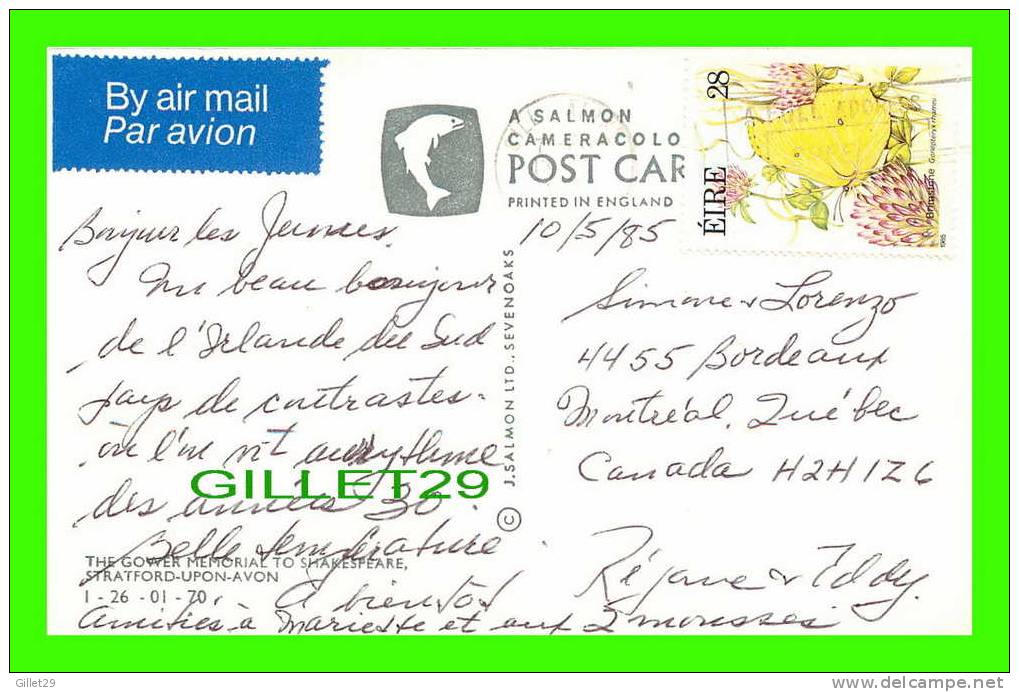 By air mail
Par avion
A SALMON
CAMERACOLO
POST CAR
PRINTED IN ENGLAND
ÉIRE 28
Brimstone Gonepteryx rhamni
1985
10/5/85
Bonjour les Jeunes.
Un beau bonjour
de l'Irlande du Sud
pays de contrastes.
où l'on vit au rythme
des années 30.
Belle température
A bientôt
Amitiés à Mariette et aux 2 mousses
THE GOWER MEMORIAL TO SHAKESPEARE,
STRATFORD-UPON-AVON
1 - 26 - 01 - 70
© J.SALMON LTD., SEVENOAKS
Simone & Lorenzo
4455 Bordeaux
Montréal, Québec
Canada H2H1Z6
Réjane & Eddy.
GILLET29
Gillet29
www.delcampe.net